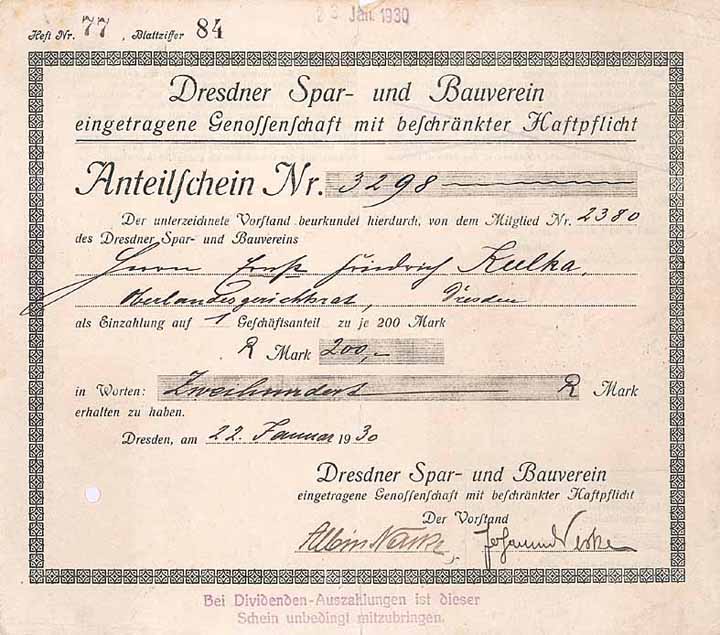 23 Jan. 1930
Heft Nr. 77, Blattziffer 84
Dresdner Spar- und Bauverein
eingetragene Genossenschaft mit beschränkter Haftpflicht
Anteilschein Nr. 3298
Der unterzeichnete Vorstand beurkundet hierdurch, von dem Mitglied Nr. 2380
des Dresdner Spar- und Bauvereins
Herrn Ernst Friedrich Kulka,
Oberlandesgerichtsrat, Dresden
als Einzahlung auf 1 Geschäftsanteil zu je 200 Mark
R Mark 200,-
in Worten: Zweihundert R Mark
erhalten zu haben.
Dresden, am 22. Januar 1930
Dresdner Spar- und Bauverein
eingetragene Genossenschaft mit beschränkter Haftpflicht
Der Vorstand
Albin Johannes
Bei Dividenden-Auszahlungen ist dieser
Schein unbedingt mitzubringen.